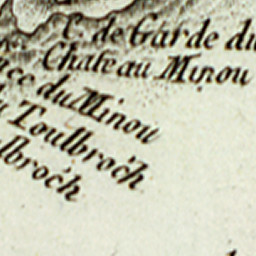 C. de Garde du
Chateau Minou
ce du Minou
Toulbroch
lbroch